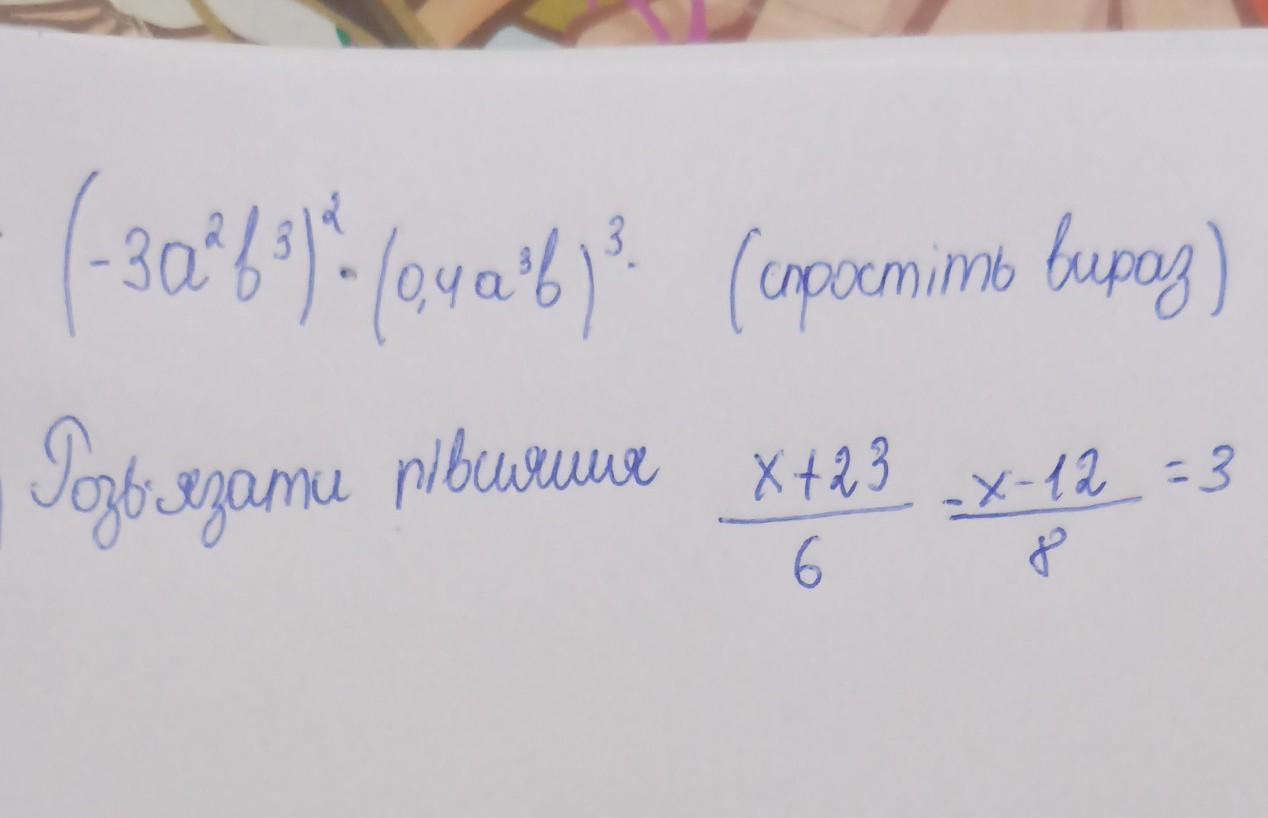 (-3a²b³)² · (0,4a³b)³. (спростіть вираз)
Розв'язати рівняння (x+23)/6 - (x-12)/8 = 3